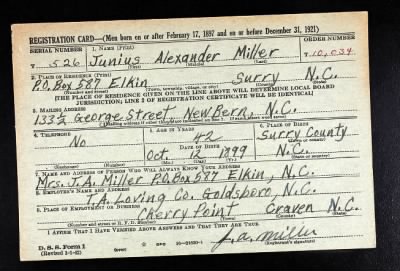 REGISTRATION CARD—(Men born on or after February 17, 1897 and on or before December 31, 1921)
SERIAL NUMBER
1. NAME (Print)
ORDER NUMBER
T 526 Junius Alexander Miller T 10,034
(First) (Middle) (Last)
2. PLACE OF RESIDENCE (Print)
P.O. Box 587 Elkin Surry N.C.
(Number and street) (Town, township, village, or city) (County) (State)
[THE PLACE OF RESIDENCE GIVEN ON THE LINE ABOVE WILL DETERMINE LOCAL BOARD
JURISDICTION; LINE 2 OF REGISTRATION CERTIFICATE WILL BE IDENTICAL]
3. MAILING ADDRESS
133½ George Street New Bern, N.C.
4. TELEPHONE
5. AGE IN YEARS
6. PLACE OF BIRTH
No 42 Surry County
DATE OF BIRTH
Oct. 12 1899 N.C.
(Exchange) (Number) (Mo.) (Day) (Yr.) (State or country)
7. NAME AND ADDRESS OF PERSON WHO WILL ALWAYS KNOW YOUR ADDRESS
Mrs. J.A. Miller P.O. Box 587 Elkin, N.C.
8. EMPLOYER'S NAME AND ADDRESS
T.A. Loving Co. Goldsboro, N.C.
9. PLACE OF EMPLOYMENT OR BUSINESS
Cherry Point Craven N.C.
(Number and street or R. F. D. number) (Town) (County) (State)
I AFFIRM THAT I HAVE VERIFIED ABOVE ANSWERS AND THAT THEY ARE TRUE.
D. S. S. Form 1
J. A. Miller
(Registrant's signature)